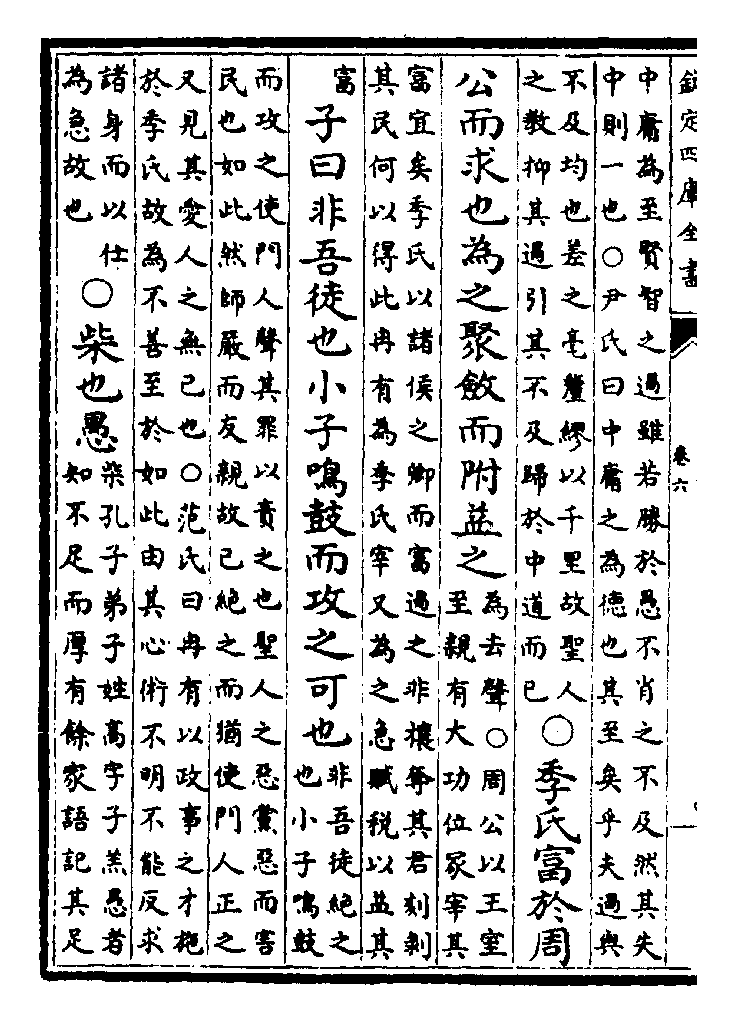 欽定四庫全書
卷六
中庸為至賢智之過雖若勝於愚不肖之不及然其失
中則一也○尹氏曰中庸之為德也其至矣乎夫過與
不及均也差之毫釐繆以千里故聖人
之教抑其過引其不及歸於中道而已
○季氏富於周
公而求也為之聚斂而附益之
為去聲○周公以王室
至親有大功位冢宰其
富宜矣季氏以諸侯之卿而富過之非攘奪其君刻剝
其民何以得此冉有為季氏宰又為之急賦稅以益其
富
子曰非吾徒也小子鳴鼓而攻之可也
非吾徒絕之
也小子鳴鼓
而攻之使門人聲其罪以責之也聖人之惡黨惡而害
民也如此然師嚴而友親故已絕之而猶使門人正之
又見其愛人之無已也○范氏曰冉有以政事之才施
於季氏故為不善至於如此由其心術不明不能反求
諸身而以仕
為急故也
○柴也愚
柴孔子弟子姓高字子羔愚者
知不足而厚有餘家語記其足